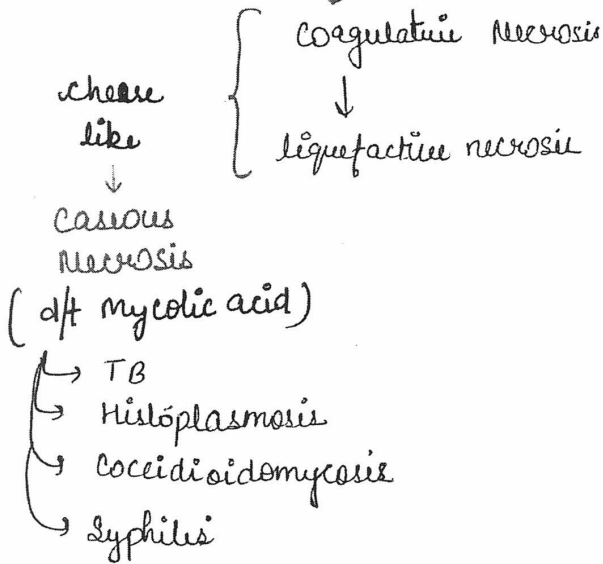 coagulative necrosis
↓
liquefactive necrosis
cheese
like
↓
caseous
necrosis
(d/t mycolic acid)
→ TB
→ Histoplasmosis
→ Coccidioidomycosis
→ Syphilis